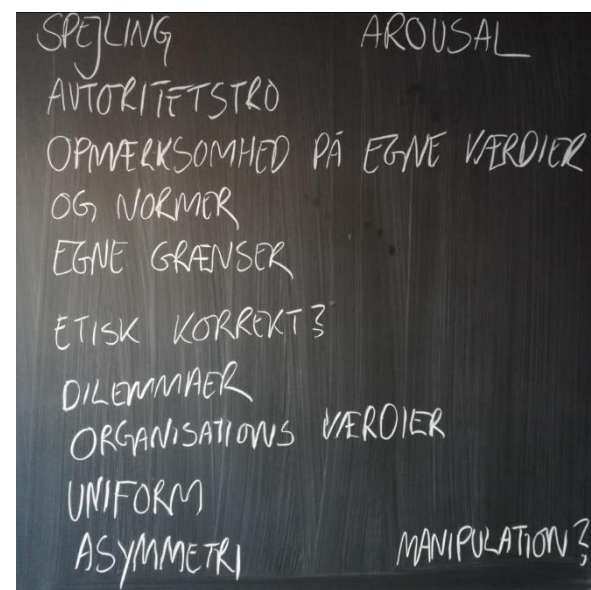 SPEJLING AROUSAL
AUTORITETSTRO
OPMÆRKSOMHED PÅ EGNE VÆRDIER
OG NORMER
EGNE GRÆNSER
ETISK KORREKT?
DILEMMAER
ORGANISATIONS VÆRDIER
UNIFORM
ASYMMETRI MANIPULATION?